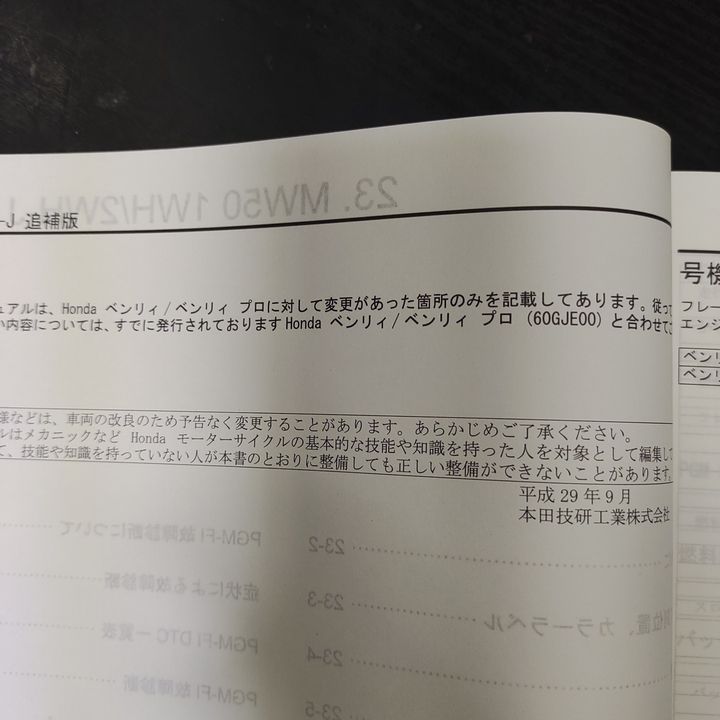 -J 追補版
ュアルは、Honda ベンリィ/ベンリィ プロに対して変更があった箇所のみを記載してあります。従っ
い内容については、すでに発行されておりますHonda ベンリィ/ベンリィ プロ (60GJE00) と合わせて
様などは、車両の改良のため予告なく変更することがあります。あらかじめご了承ください。
ルはメカニックなど Honda モーターサイクルの基本的な技能や知識を持った人を対象として編集し
て、技能や知識を持っていない人が本書のとおりに整備しても正しい整備ができないことがあります。
平成 29 年 9 月
本田技研工業株式会社
23. MW50 1WH/2WH-J
PGM-FI 故障診断について
23-2
症状による故障診断
23-3
位置、カラーラベル
PGM-FI DTC 一覧表
23-4
PGM-FI 故障診断
23-5
号機
フレー
エンジ
ベンリ
ベンリ